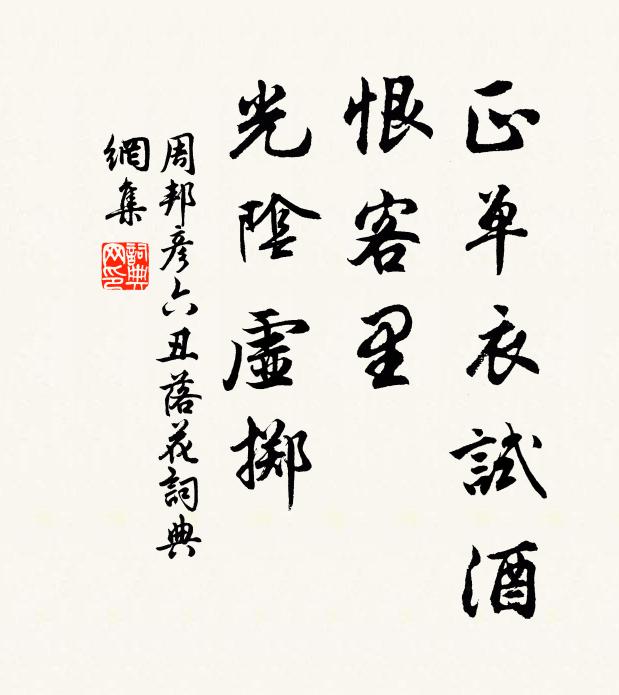 正单衣試酒
恨客里
光陰虛掷
周邦彦六丑落花詞典
網集
詞典
网印